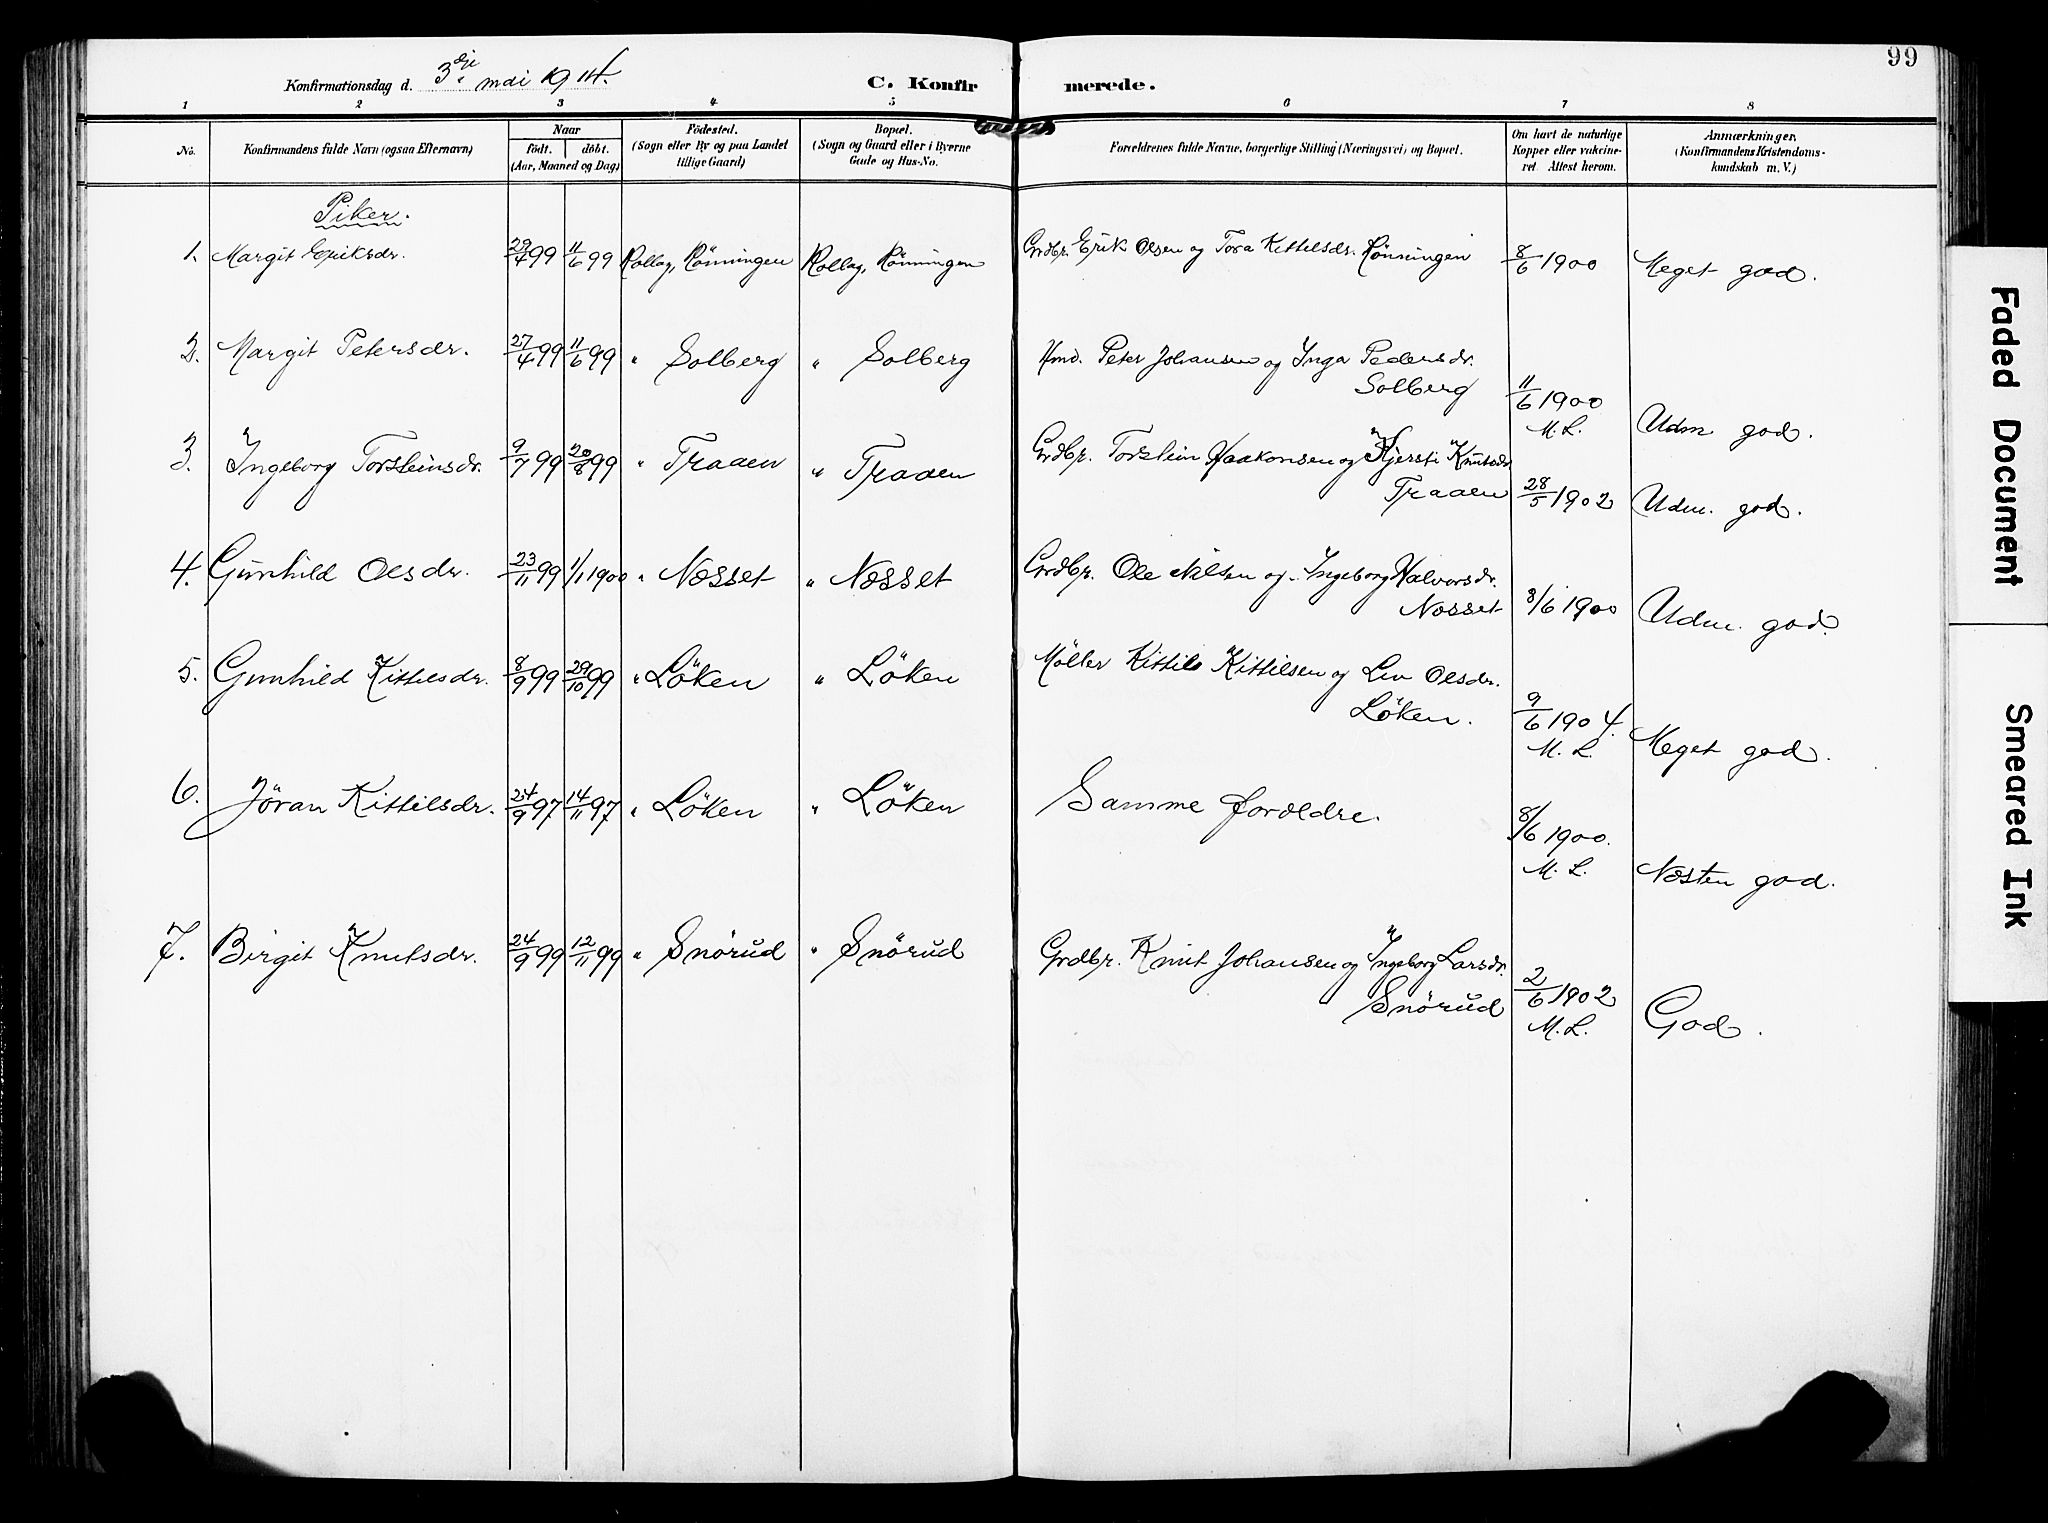 99
Konfirmationsdag d. 3dje mai 1914.
C. Konfirmerede.
1 2 3 4 5 6 7 8
No.
Konfirmandens fulde Navn (ogsaa Efternavn)
Naar
født. døbt.
(Aar, Maaned og Dag)
Fødested.
(Sogn eller By og paa Landet
tillige Gaard)
Bopæl.
(Sogn og Gaard eller i Byerne
Gade og Hus-No.
Forældrenes fulde Navne, borgerlige Stilling (Næringsvei) og Bopæl.
Om havt de naturlige
Kopper eller vakcine-
ret. Attest herom.
Anmærkninger.
(Konfirmandens Kristendoms-
kundskab m. V.)
Piker.
1. Margit Eriksdr. 29/4 99 11/6 99 Rollag, Rönningen Rollag, Rönningen Grdbr. Erik Olsen og Tora Kittilsdr. Rönningen 8/6 1900 Meget god.
2. Margit Petersdr. 27/4 99 11/6 99 " Solberg " Solberg Hmd. Peter Johansen og Inga Pedersdr.
Solberg 11/6 1900
M. L. Udm god.
3. Ingeborg Torsteinsdr. 9/7 99 20/8 99 " Traaen " Traaen Grdbr. Torstein Haakonsen og Kjersti Knutsdr
Traaen 28/5 1902 Udm. god.
4. Gunhild Olsdr. 23/11 99 1/1 1900 " Næsset " Næsset Grdbr. Ole Nilsen og Ingeborg Halvorsdr.
Næsset 8/6 1900 Udm. god.
5. Gunhild Kittilsdr. 8/9 99 29/10 99 " Löken " Löken Möller Kittil Kittilsen og Liv Olsdr.
Löken. 9/6 1904.
M. L. Meget god.
6. Jöran Kittilsdr. 24/9 97 14/11 97 " Löken " Löken Samme forældre. 8/6 1900.
M. L. Næsten god.
7. Birgit Knutsdr. 24/9 99 12/11 99 " Snörud " Snörud Grdbr. Knut Johansen og Ingeborg Larsdr.
Snörud 2/6 1902
M. L. God.
Faded Document
Smeared Ink